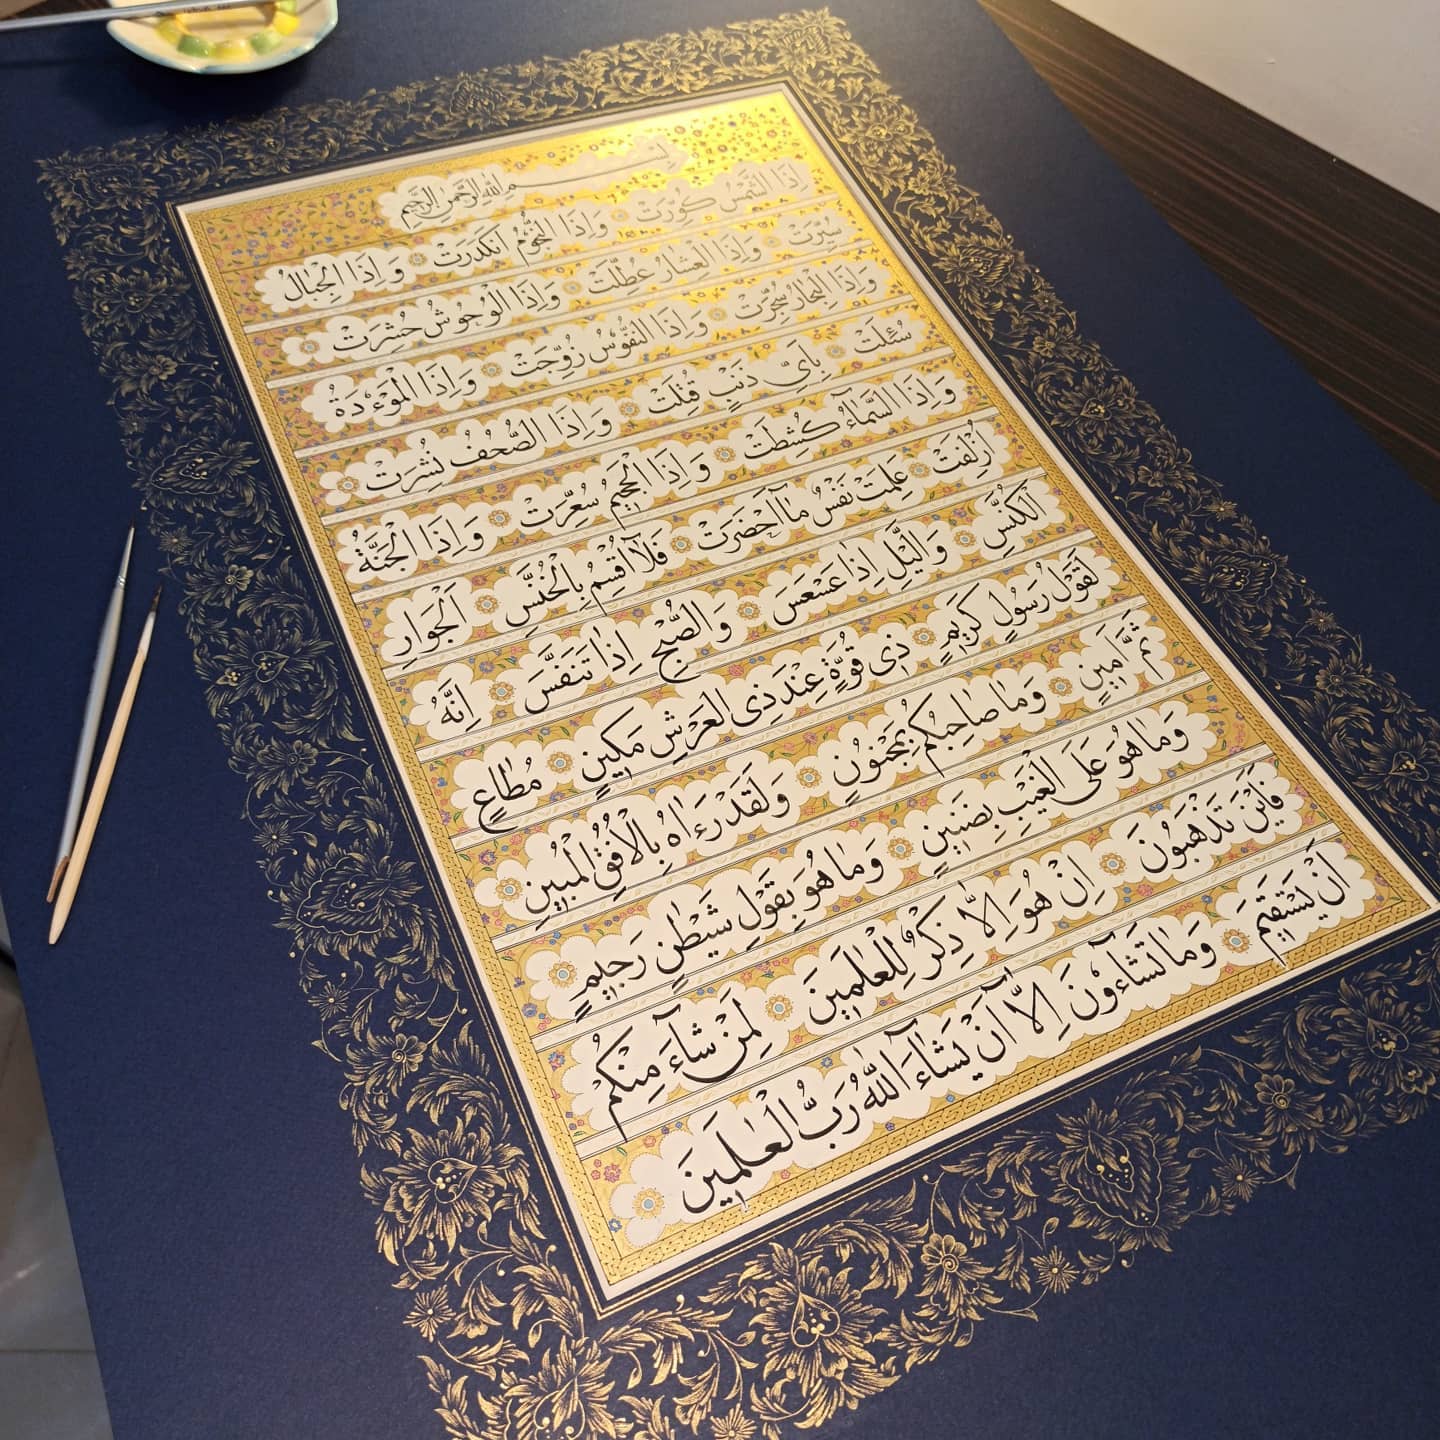 بِسْمِ اللّٰهِ الرَّحْمٰنِ الرَّحِيمِ
اِذَا الشَّمْسُ كُوِّرَتْ وَاِذَا النُّجُومُ انْكَدَرَتْ وَاِذَا الْجِبَالُ
سُيِّرَتْ وَاِذَا الْعِشَارُ عُطِّلَتْ وَاِذَا الْوُحُوشُ حُشِرَتْ
وَاِذَا الْبِحَارُ سُجِّرَتْ وَاِذَا النُّفُوسُ زُوِّجَتْ وَاِذَا الْمَوْءُدَةُ
سُئِلَتْ بِاَيِّ ذَنْبٍ قُتِلَتْ وَاِذَا الصُّحُفُ نُشِرَتْ
وَاِذَا السَّمَآءُ كُشِطَتْ وَاِذَا الْجَحِيمُ سُعِّرَتْ وَاِذَا الْجَنَّةُ
اُزْلِفَتْ عَلِمَتْ نَفْسٌ مَآ اَحْضَرَتْ فَلَآ اُقْسِمُ بِالْخُنَّسِ اَلْجَوَارِ
الْكُنَّسِ وَالَّيْلِ اِذَا عَسْعَسَ وَالصُّبْحِ اِذَا تَنَفَّسَ اِنَّهُ
لَقَوْلُ رَسُولٍ كَرِيمٍ ذِى قُوَّةٍ عِنْدَ ذِى الْعَرْشِ مَكِينٍ مُطَاعٍ
ثَمَّ اَمِينٍ وَمَا صَاحِبُكُمْ بِمَجْنُونٍ وَلَقَدْ رَءَاهُ بِالْاُفُقِ الْمُبِينِ
وَمَا هُوَ عَلَى الْغَيْبِ بِضَنِينٍ وَمَا هُوَ بِقَوْلِ شَيْطٰنٍ رَجِيمٍ
فَاَيْنَ تَذْهَبُونَ اِنْ هُوَ اِلَّا ذِكْرٌ لِلْعٰلَمِينَ لِمَنْ شَآءَ مِنْكُمْ
اَنْ يَسْتَقِيمَ وَمَا تَشَآءُونَ اِلَّآ اَنْ يَشَآءَ اللّٰهُ رَبُّ الْعٰلَمِينَ